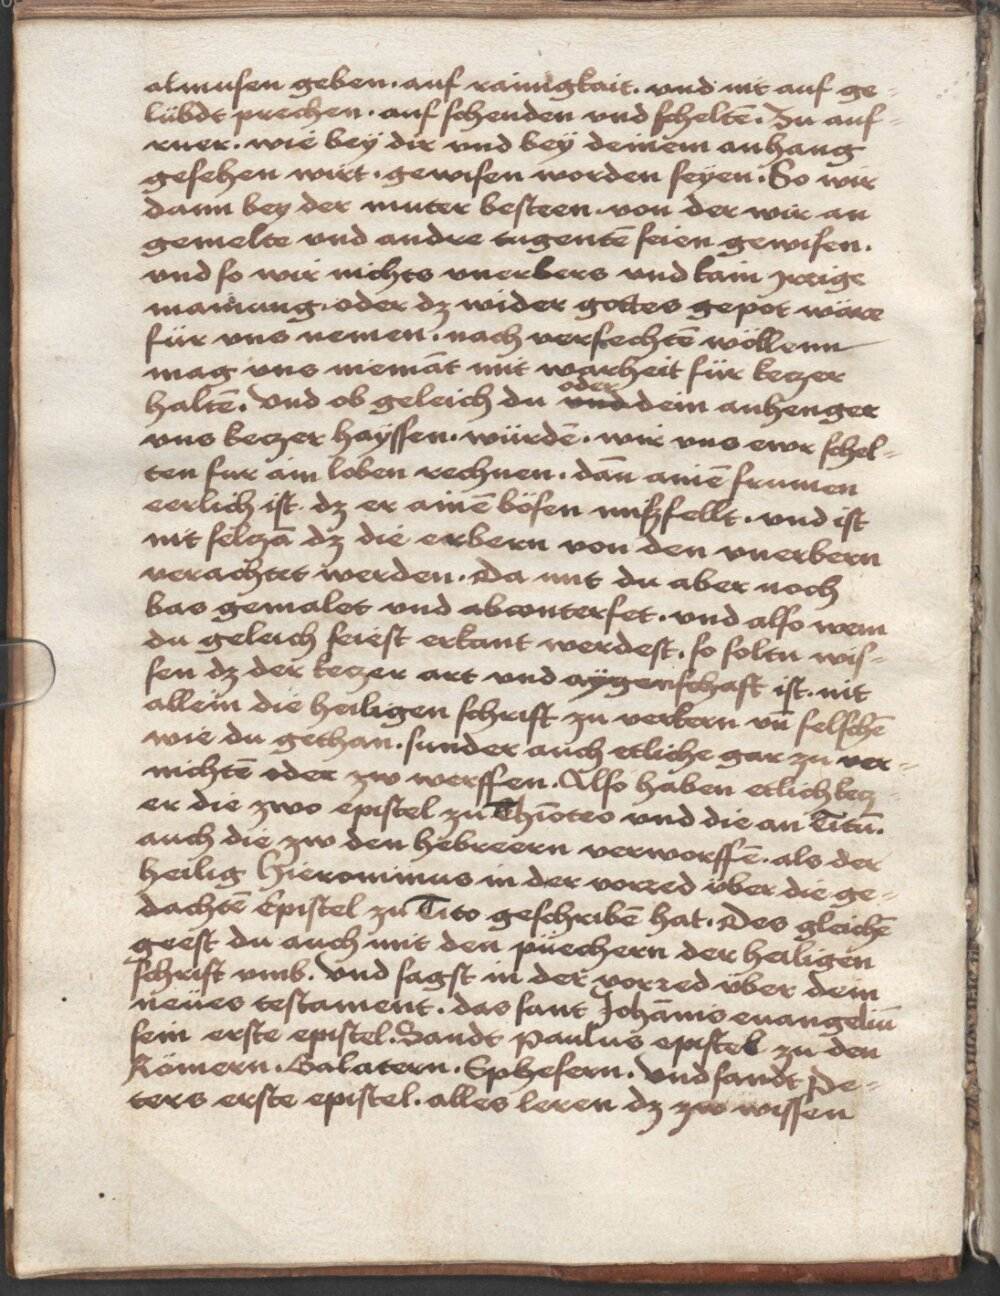 almusen geben. auf rainigkait. vnd nit auf ge-
lübdt prechen. auf schenden vnd scheltē. Zu auf-
ruer. wie bey dir vnd bey deinem anhang
gesehen wirt. gewisen worden seyen. So wir
dann bey der muter besteen. von der wir an
gemelte vnd andre tugentē seien gewisen.
vnd so wir nichts vnerbers vnd kain jrrige
mainung. oder dz wider gottes gepot wäre
für vns nemen. nach verfechtē wöllenn
mag vns niemāt mit warheit für keczer
haltē. Vnd ob geleich du oder dein anhenger
vns keczer hayssen. würdē. wir vns ewr schel-
ten fur ain loben rechnen. dañ ainē frumen
eerlich ist. dz er ainē bösen mißfellt. vnd ist
nit selczā dz die erbern von den vnerbern
verachtet werden. Da mit du aber noch
bas gemalet vnd abconterfet. vnd also wem
du geleich seiest erkant werdest. so soltu wis-
sen dz der keczer art vnd aygenschaft ist. nit
allein die heiligen schrift zu verkern vñ felschē
wie du gethan. sunder auch etliche gar zu ver-
nichtē oder zw werffen. Also haben etlich kecz-
er die zwo epistel zu Thīoteo vnd die an Titū.
auch die zw den hebreern verworffē. als der
heilig Hieronimus in der vorred über die ge-
dachtē Epistel zu Tito geschribē hat. Des gleichē
geest du auch mit den püechern der heiligen
schrift vmb. Vnd sagst in der vorred über dem
neües testament. das sant Johānis euangeliū
sein erste epistel. Sandt Paulus epistel zu den
Römern. Galatern. Ephesern. Vnd sandt Pe-
ters erste epistel. alles leren dz zw wissen